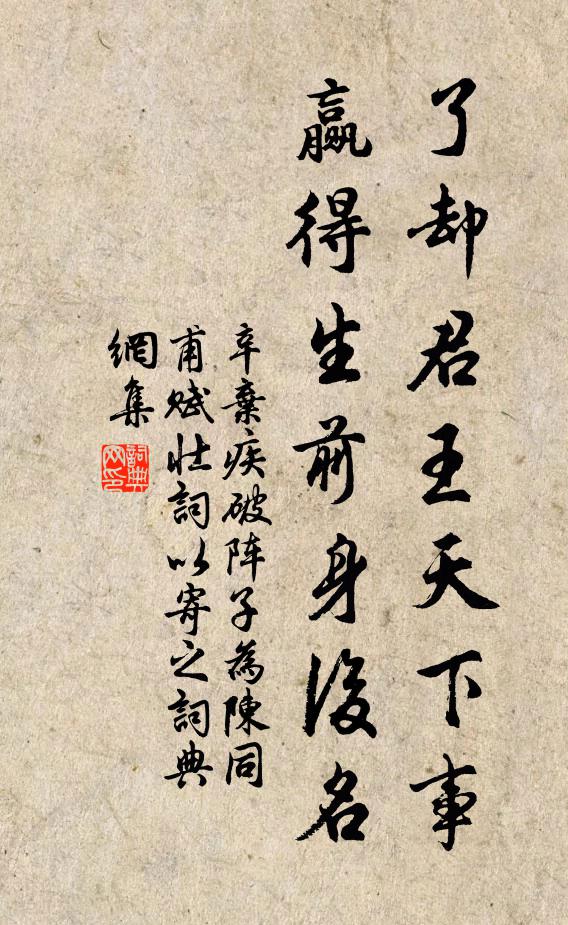 了却君王天下事
贏得生前身後名
辛棄疾破阵子為陳同
甫賦壯詞以寄之詞典
網集
詞典
网印